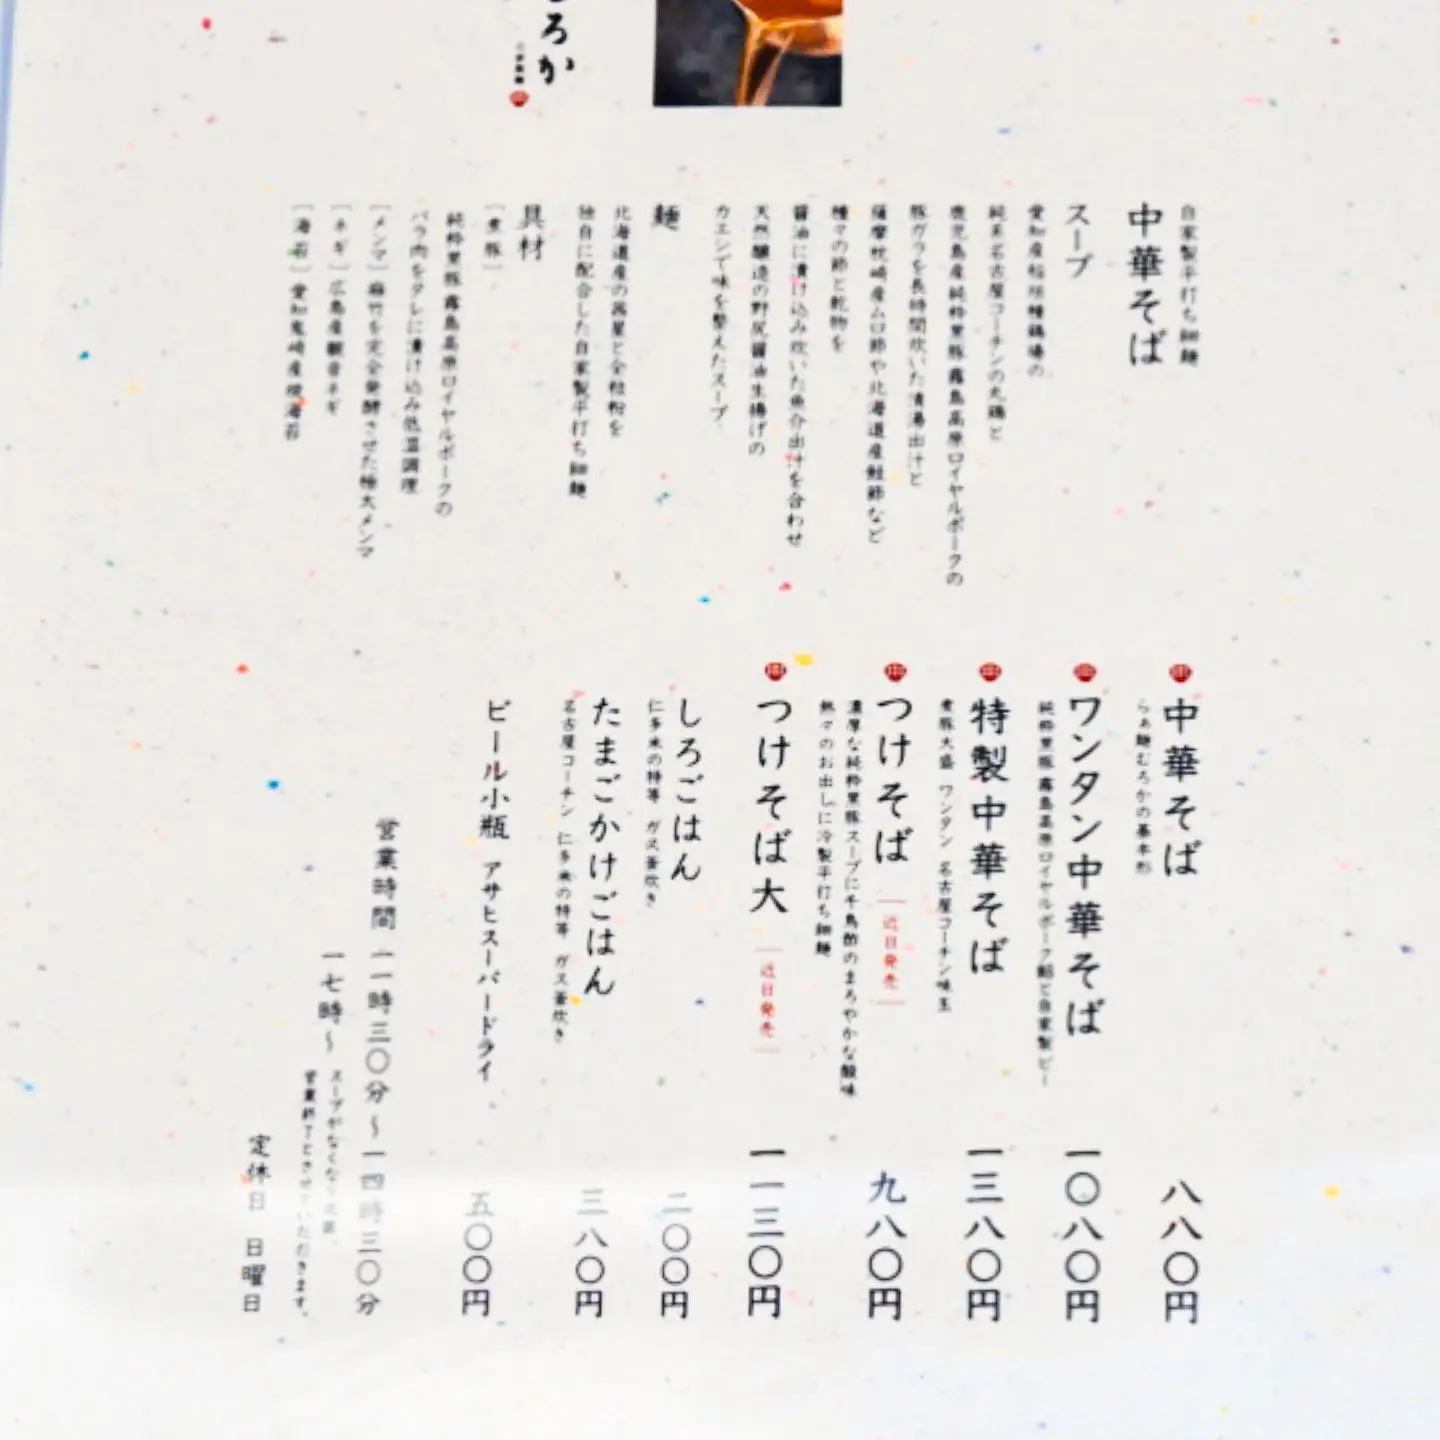 ろか
自家製平打ち細麺
中華そば
スープ
愛知産稲垣種鶏場の
純系名古屋コーチンの丸鶏と
鹿児島産純粋黒豚 霧島高原ロイヤルポークの
豚ガラを長時間炊いた清湯出汁と
薩摩枕崎産ムロ節や北海道産鮭節など
種々の節と乾物を
醤油に漬け込み炊いた魚介出汁を合わせ
天然醸造の野尻醤油生揚げの
カエシで味を整えたスープ
麺
北海道産の茜星と全粒粉を
独自に配合した自家製平打ち細麺
具材
［煮豚］
純粋黒豚 霧島高原ロイヤルポークの
バラ肉をタレに漬け込み低温調理
［メンマ］麻竹を完全発酵させた極太メンマ
［ネギ］広島産観音ネギ
［海苔］愛知鬼崎産焼海苔
中華そば 八八〇円
らぁ麺むろかの基本形
ワンタン中華そば 一〇八〇円
純粋黒豚 霧島高原ロイヤルポーク餡と自家製ピー
特製中華そば 一三八〇円
煮豚大盛 ワンタン 名古屋コーチン味玉
つけそば 近日発売 九八〇円
濃厚な純粋黒豚スープに千鳥酢のまろやかな酸味
熱々のお出しに冷製平打ち細麺
つけそば大 近日発売 一一三〇円
しろごはん 二〇〇円
仁多米の特等 ガス釜炊き
たまごかけごはん 三八〇円
名古屋コーチン 仁多米の特等 ガス釜炊き
ビール小瓶 アサヒスーパードライ 五〇〇円
営業時間 一一時三〇分〜一四時三〇分
一七時〜 スープがなくなり次第、
営業終了とさせていただきます。
定休日 日曜日